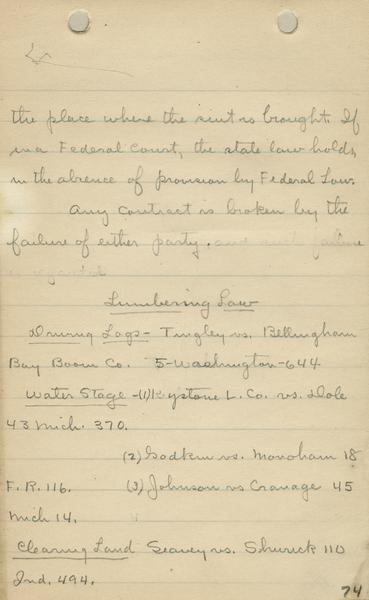 the place where the suit is brought. If
in a Federal Court, the state law holds,
in the absence of provision by Federal Law.
Any contract is broken by the
failure of either party. and such failure
is regarded
Lumbering Law
Driving Logs - Tingley vs. Bellingham
Bay Boom Co. 5-Washington-644
Water Stage -(1) Keystone L. Co. vs. Dole
43 Mich. 370.
(2) Godkin vs. Monoham 18
F.R. 116. (3) Johnson vs Cranage 45
Mich 14.
Clearing Land Seavey vs. Shurick 110
Ind. 494.
74